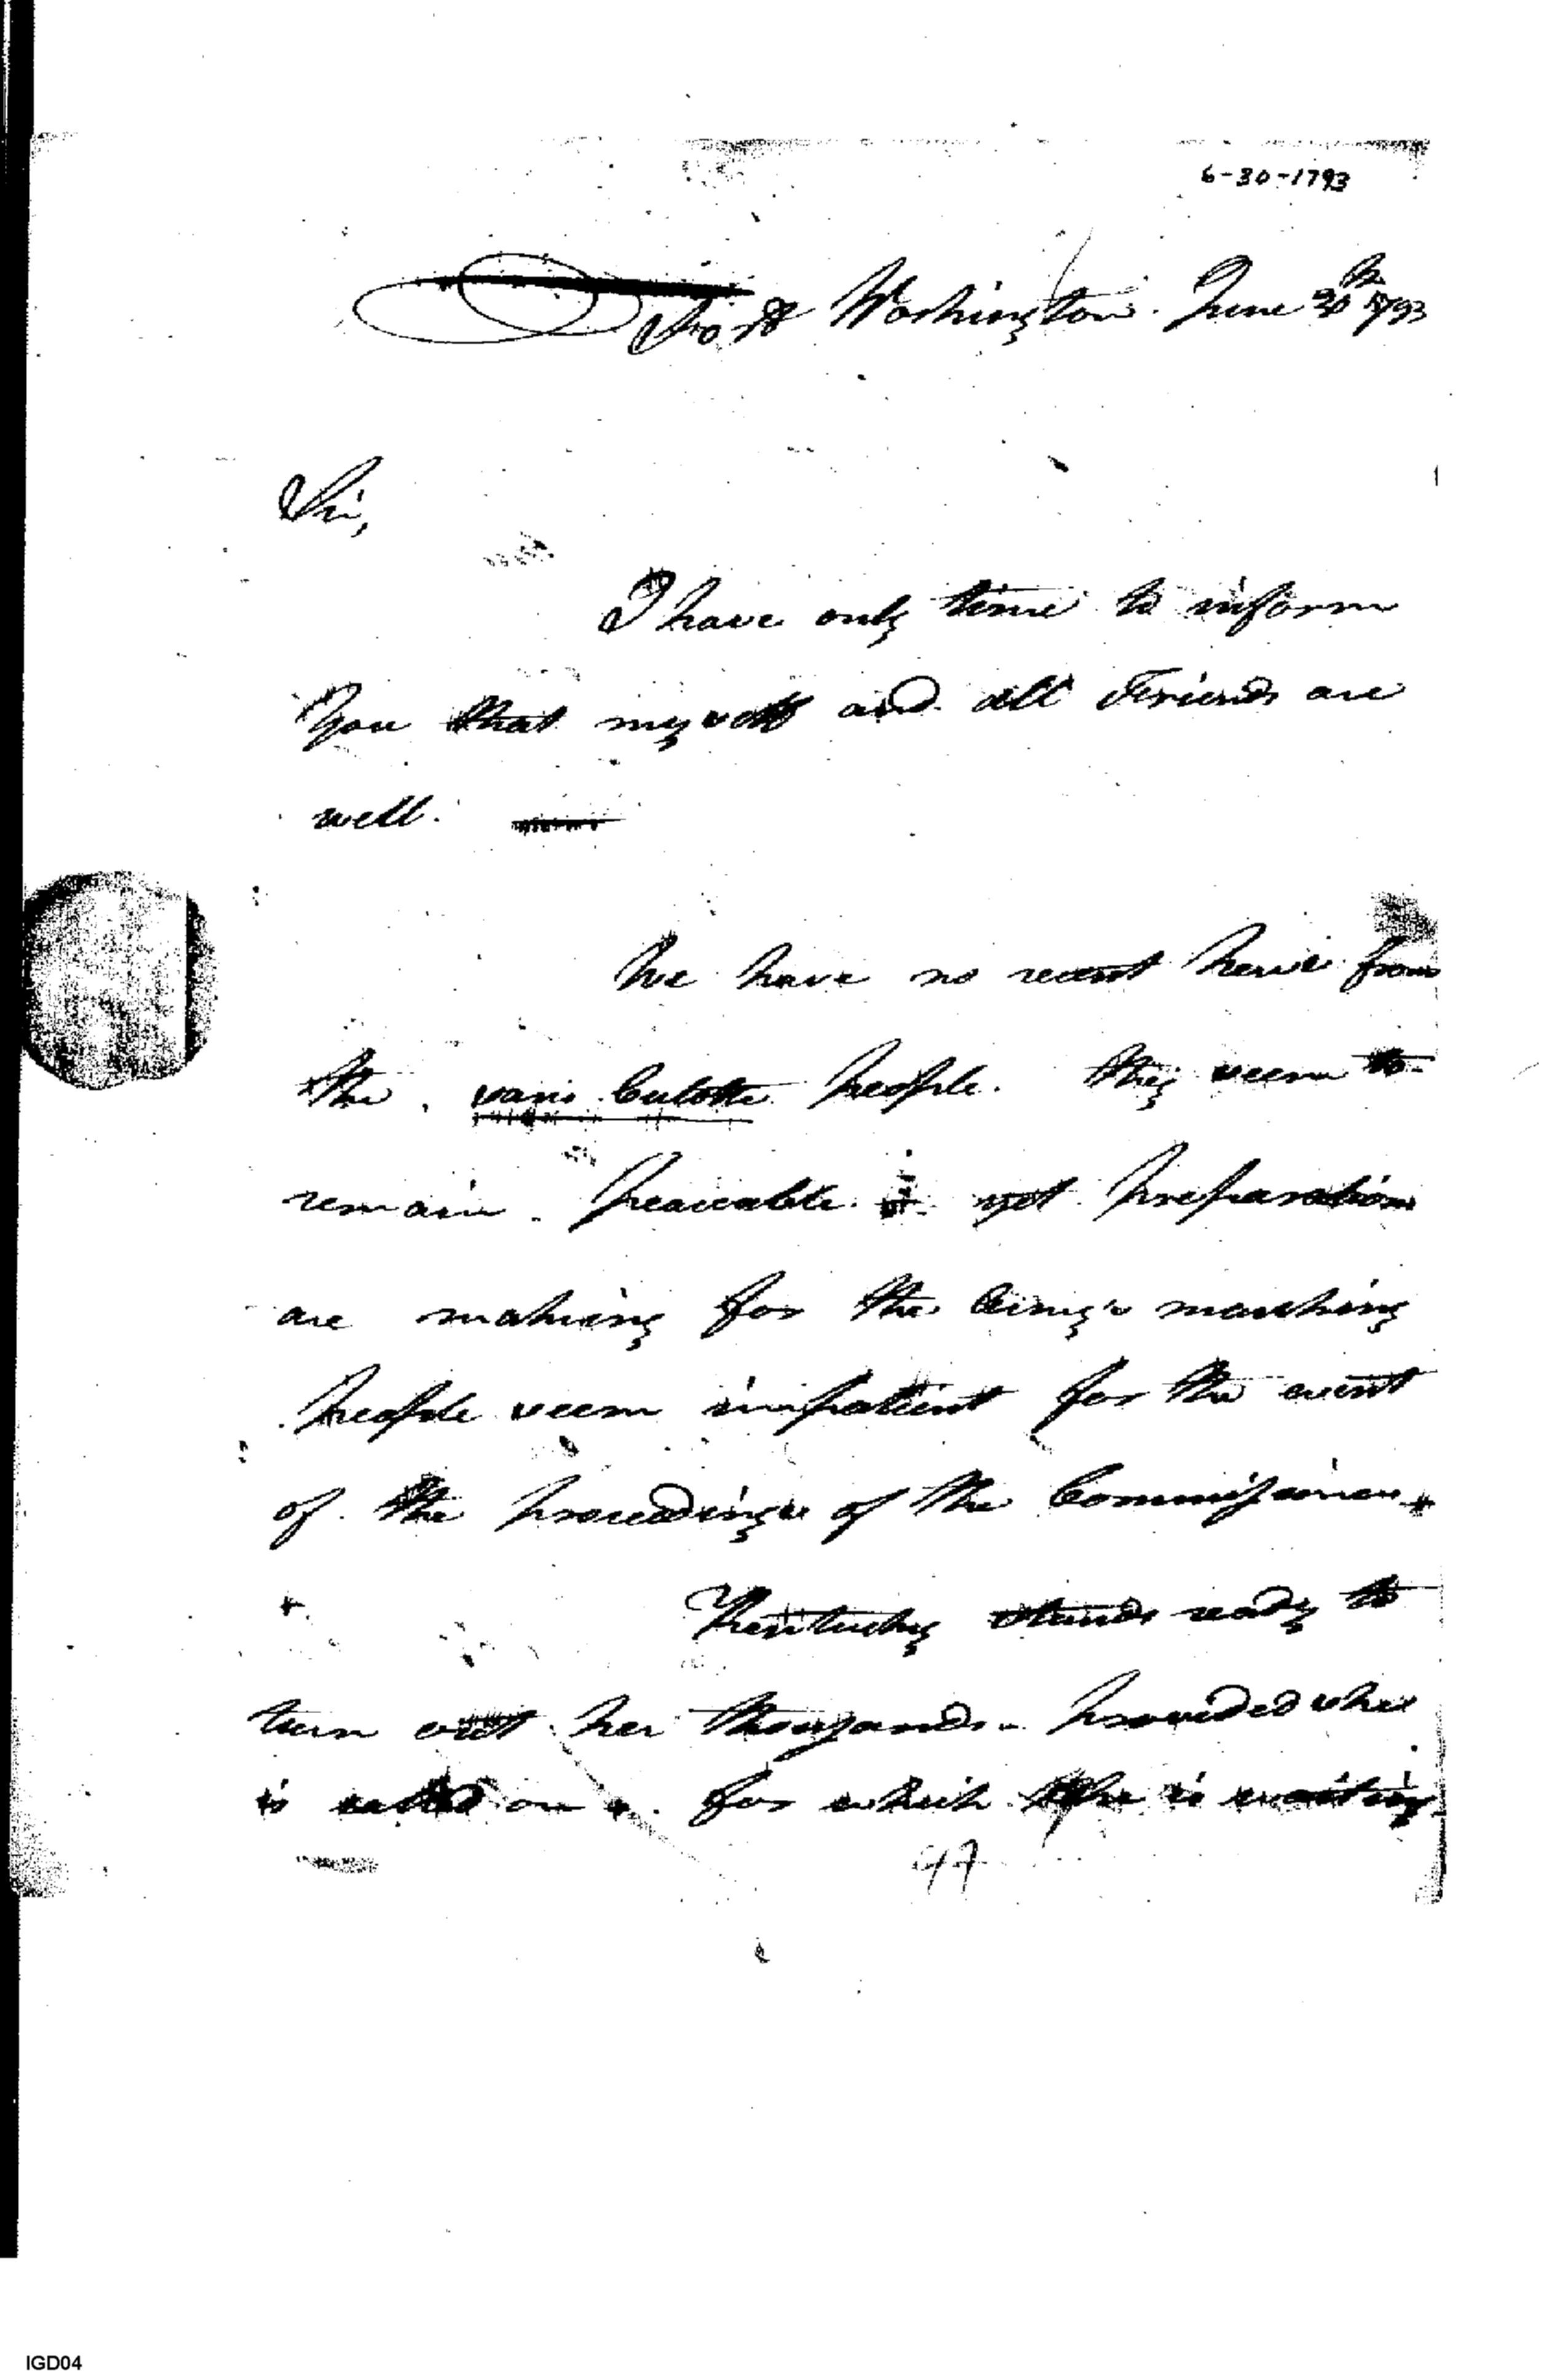 6-30-1793
Fort Washington. June 30th 1793
Sir,
I have only time to inform
You that myself and all Friends are
well.
We have no recent news from
the sans Culotte people. they seem to
remain peaceable yet preparations
are making for the marching
people seem impatient for the event
of the proceedings of the Commissioners
Kentucky stands ready to
turn out her thousands - provided she
is called on for which she is waiting
97
IGD04